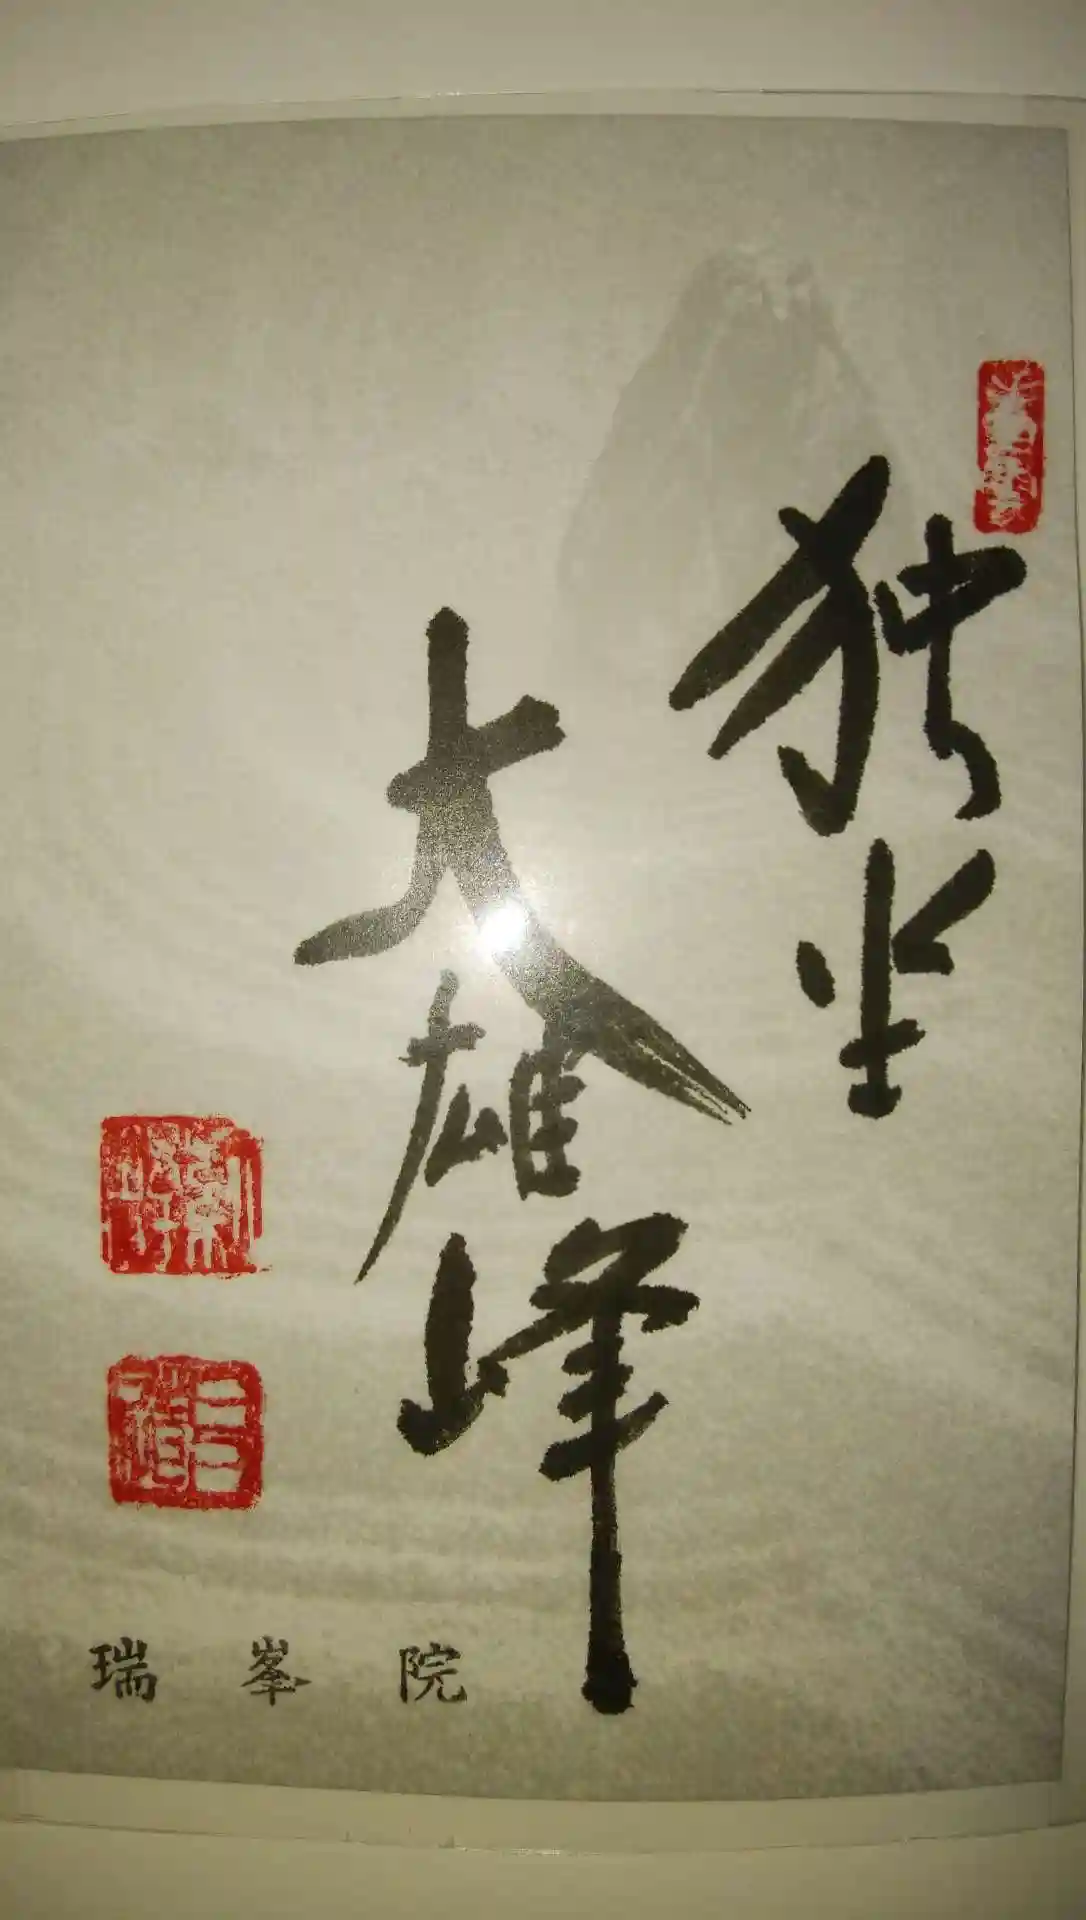 独坐
大雄峰
瑞峯院